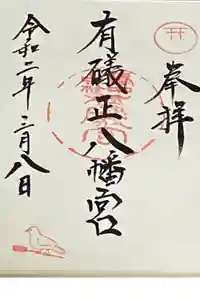 奉拝
有磯正八幡宮
令和二年三月八日